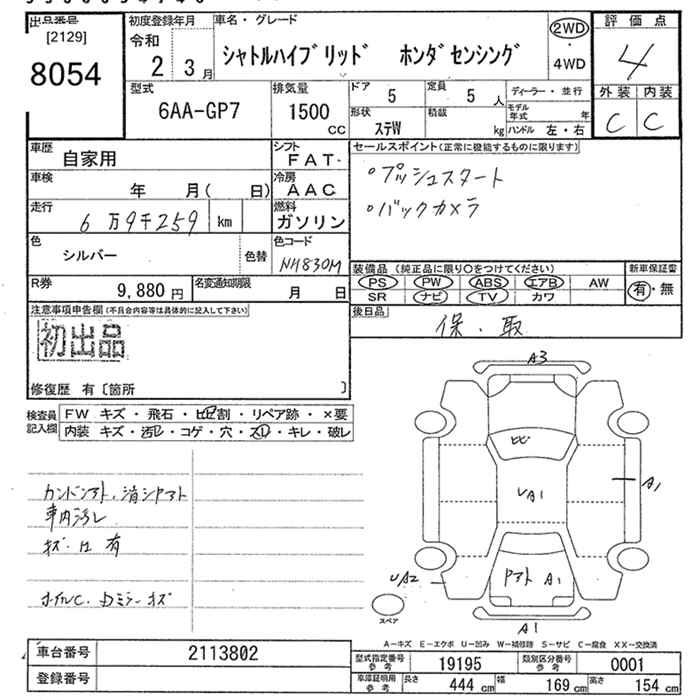 出品番号
[2129]
8054
初度登録年月
令和
2 3月
車名・グレード
シャトルハイブリッド ホンダセンシング
2WD
・
4WD
評価点
4
外装 内装
C C
型式
6AA-GP7
排気量
1500
cc
ドア 5
定員 5 人
形状 ステW
積載 kg
ディーラー・並行
モデル年式 年
ハンドル 左・右
車歴 自家用
シフト FAT
車検 年 月( 日)
冷房 AAC
走行 6万9千259 km
燃料 ガソリン
色 シルバー 色替
色コード NH830M
R券 9,880 円
名変通知期限 月 日
セールスポイント(正常に機能するものに限ります)
・プッシュスタート
・バックカメラ
装備品 (純正品に限り○をつけてください)
PS PW ABS エアB AW
SR ナビ TV カワ
新車保証書
有・無
後日品
保・取
注意事項申告欄(不具合内容等は具体的に記入して下さい)
初出品
修復歴 有〔箇所 〕
検査員記入欄
FW キズ・飛石・ヒビ割・リペア跡・×要
内装 キズ・汚レ・コゲ・穴・スレ・キレ・破レ
車内汚レ
キズ・凹 有
ホイルC.Dミラーキズ
A3
ヒビ
UA1
A1
UA2
ヤブト A1
スペア
A1
A-キズ E-エクボ U-凹み W-補修跡 S-サビ C-腐食 XX-交換済
車台番号 2113802
登録番号
型式指定番号参考 19195
類別区分番号参考 0001
車庫証明用参考 長さ 444 cm 幅 169 cm 高さ 154 cm